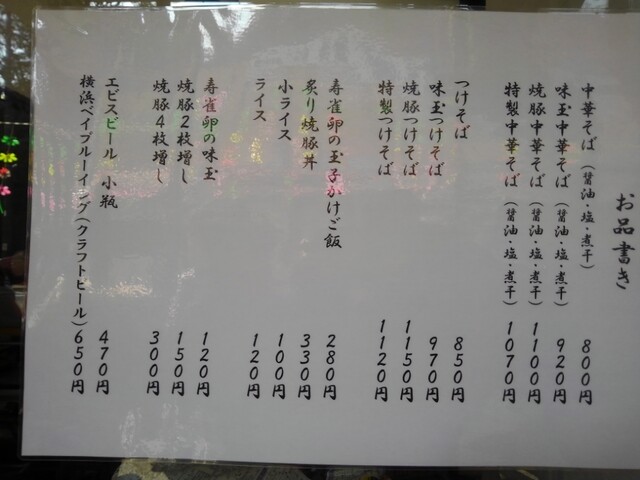 お品書き
中華そば（醤油・塩・煮干） 800円
味玉中華そば（醤油・塩・煮干） 920円
焼豚中華そば（醤油・塩・煮干） 1100円
特製中華そば（醤油・塩・煮干） 1070円
つけそば 850円
味玉つけそば 970円
焼豚つけそば 1150円
特製つけそば 1120円
寿雀卵の玉子かけご飯 280円
炙り焼豚丼 330円
小ライス 100円
ライス 120円
寿雀卵の味玉 120円
焼豚2枚増し 150円
焼豚4枚増し 300円
エビスビール 小瓶 470円
横浜ベイブルーイング（クラフトビール） 650円